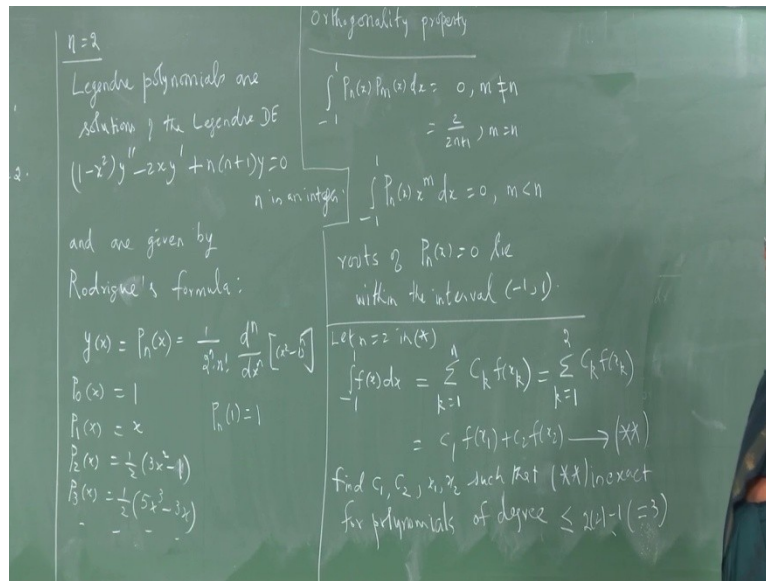 n=2
Legendre polynomials are
solutions of the Legendre DE
(1-x²)y'' - 2xy' + n(n+1)y = 0
n is an integer.
and are given by
Rodrigue's formula:
y(x) = Pₙ(x) = 1/(2ⁿ·n!) dⁿ/dxⁿ [(x²-1)ⁿ]
P₀(x) = 1
Pₙ(1) = 1
P₁(x) = x
P₂(x) = 1/2 (3x²-1)
P₃(x) = 1/2 (5x³-3x)
- - - -
Orthogonality property
∫₋₁¹ Pₙ(x) Pₘ(x) dx = 0, m≠n
= 2/(2n+1), m=n
∫₋₁¹ Pₙ(x) xᵐ dx = 0, m<n
roots of Pₙ(x)=0 lie
within the interval (-1,1).
Let n=2 in (*)
∫₋₁¹ f(x)dx = ∑ₖ₌₁ⁿ Cₖ f(xₖ) = ∑ₖ₌₁² Cₖ f(xₖ)
= C₁ f(x₁) + C₂ f(x₂) → (**)
find C₁, C₂, x₁, x₂ such that (**) is exact
for polynomials of degree ≤ 2(2)-1 (=3)
2.